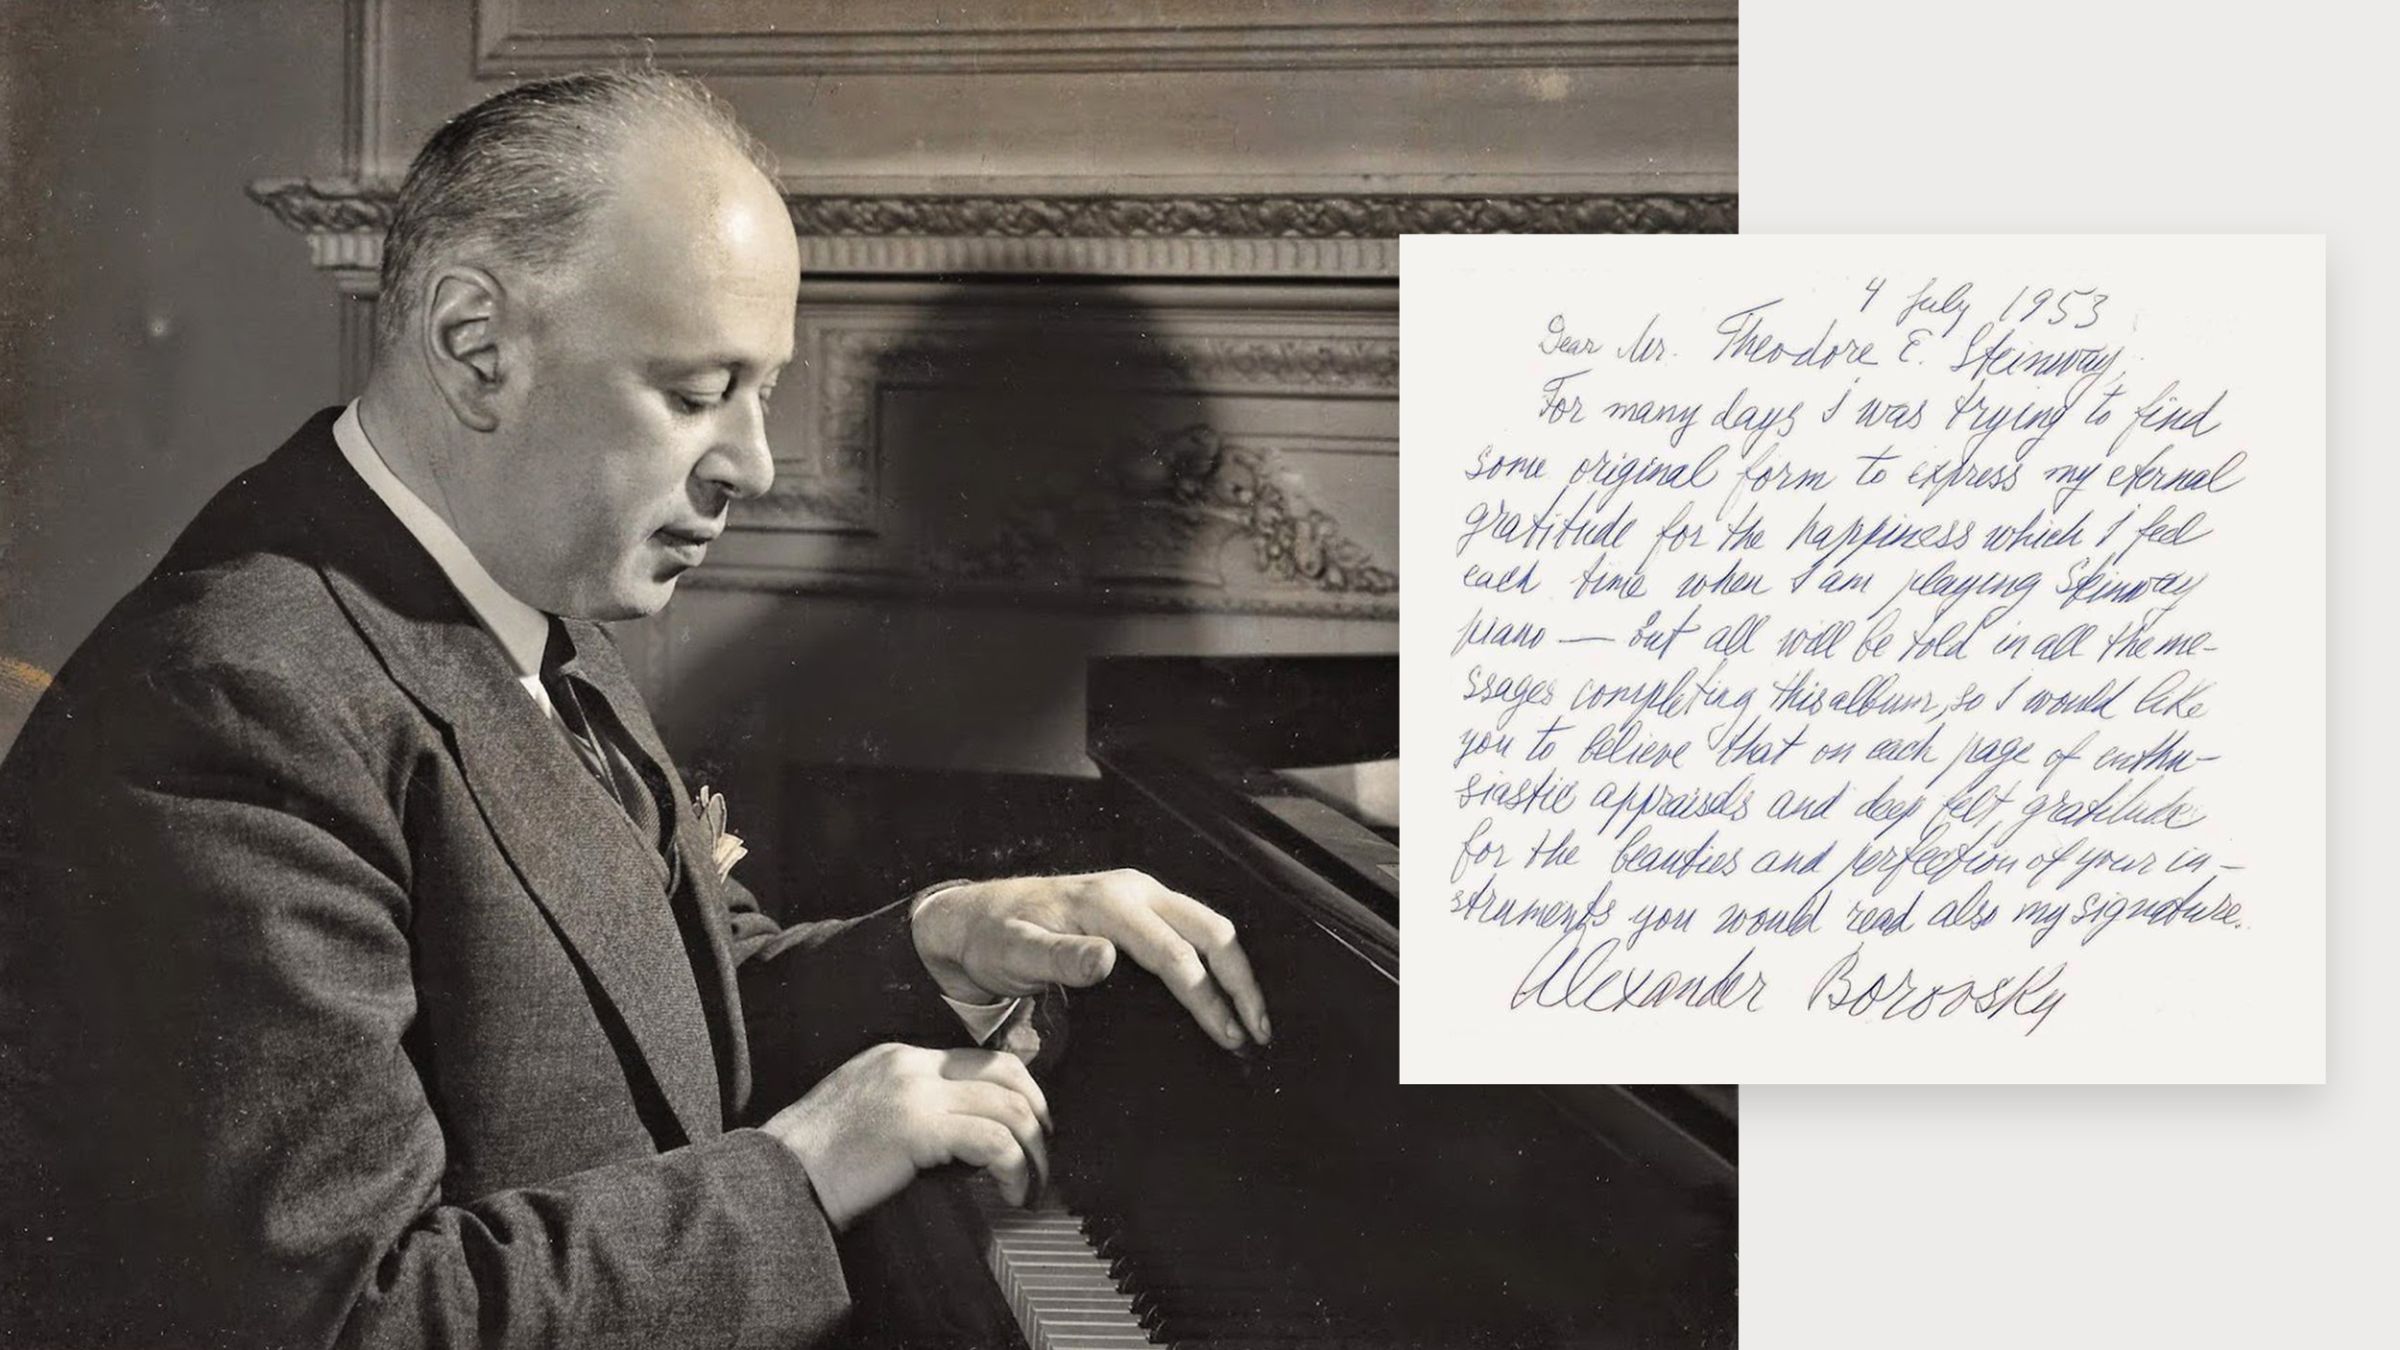 4 July 1953
Dear Mr. Theodore E. Steinway,
For many days I was trying to find
some original form to express my eternal
gratitude for the happiness which I feel
each time when I am playing Steinway
piano — but all will be told in all the me-
ssages completing this album, so I would like
you to believe that on each page of enthu-
siastic appraisals and deep felt gratitude
for the beauties and perfection of your in-
struments you would read also my signature.
Alexander Borovsky